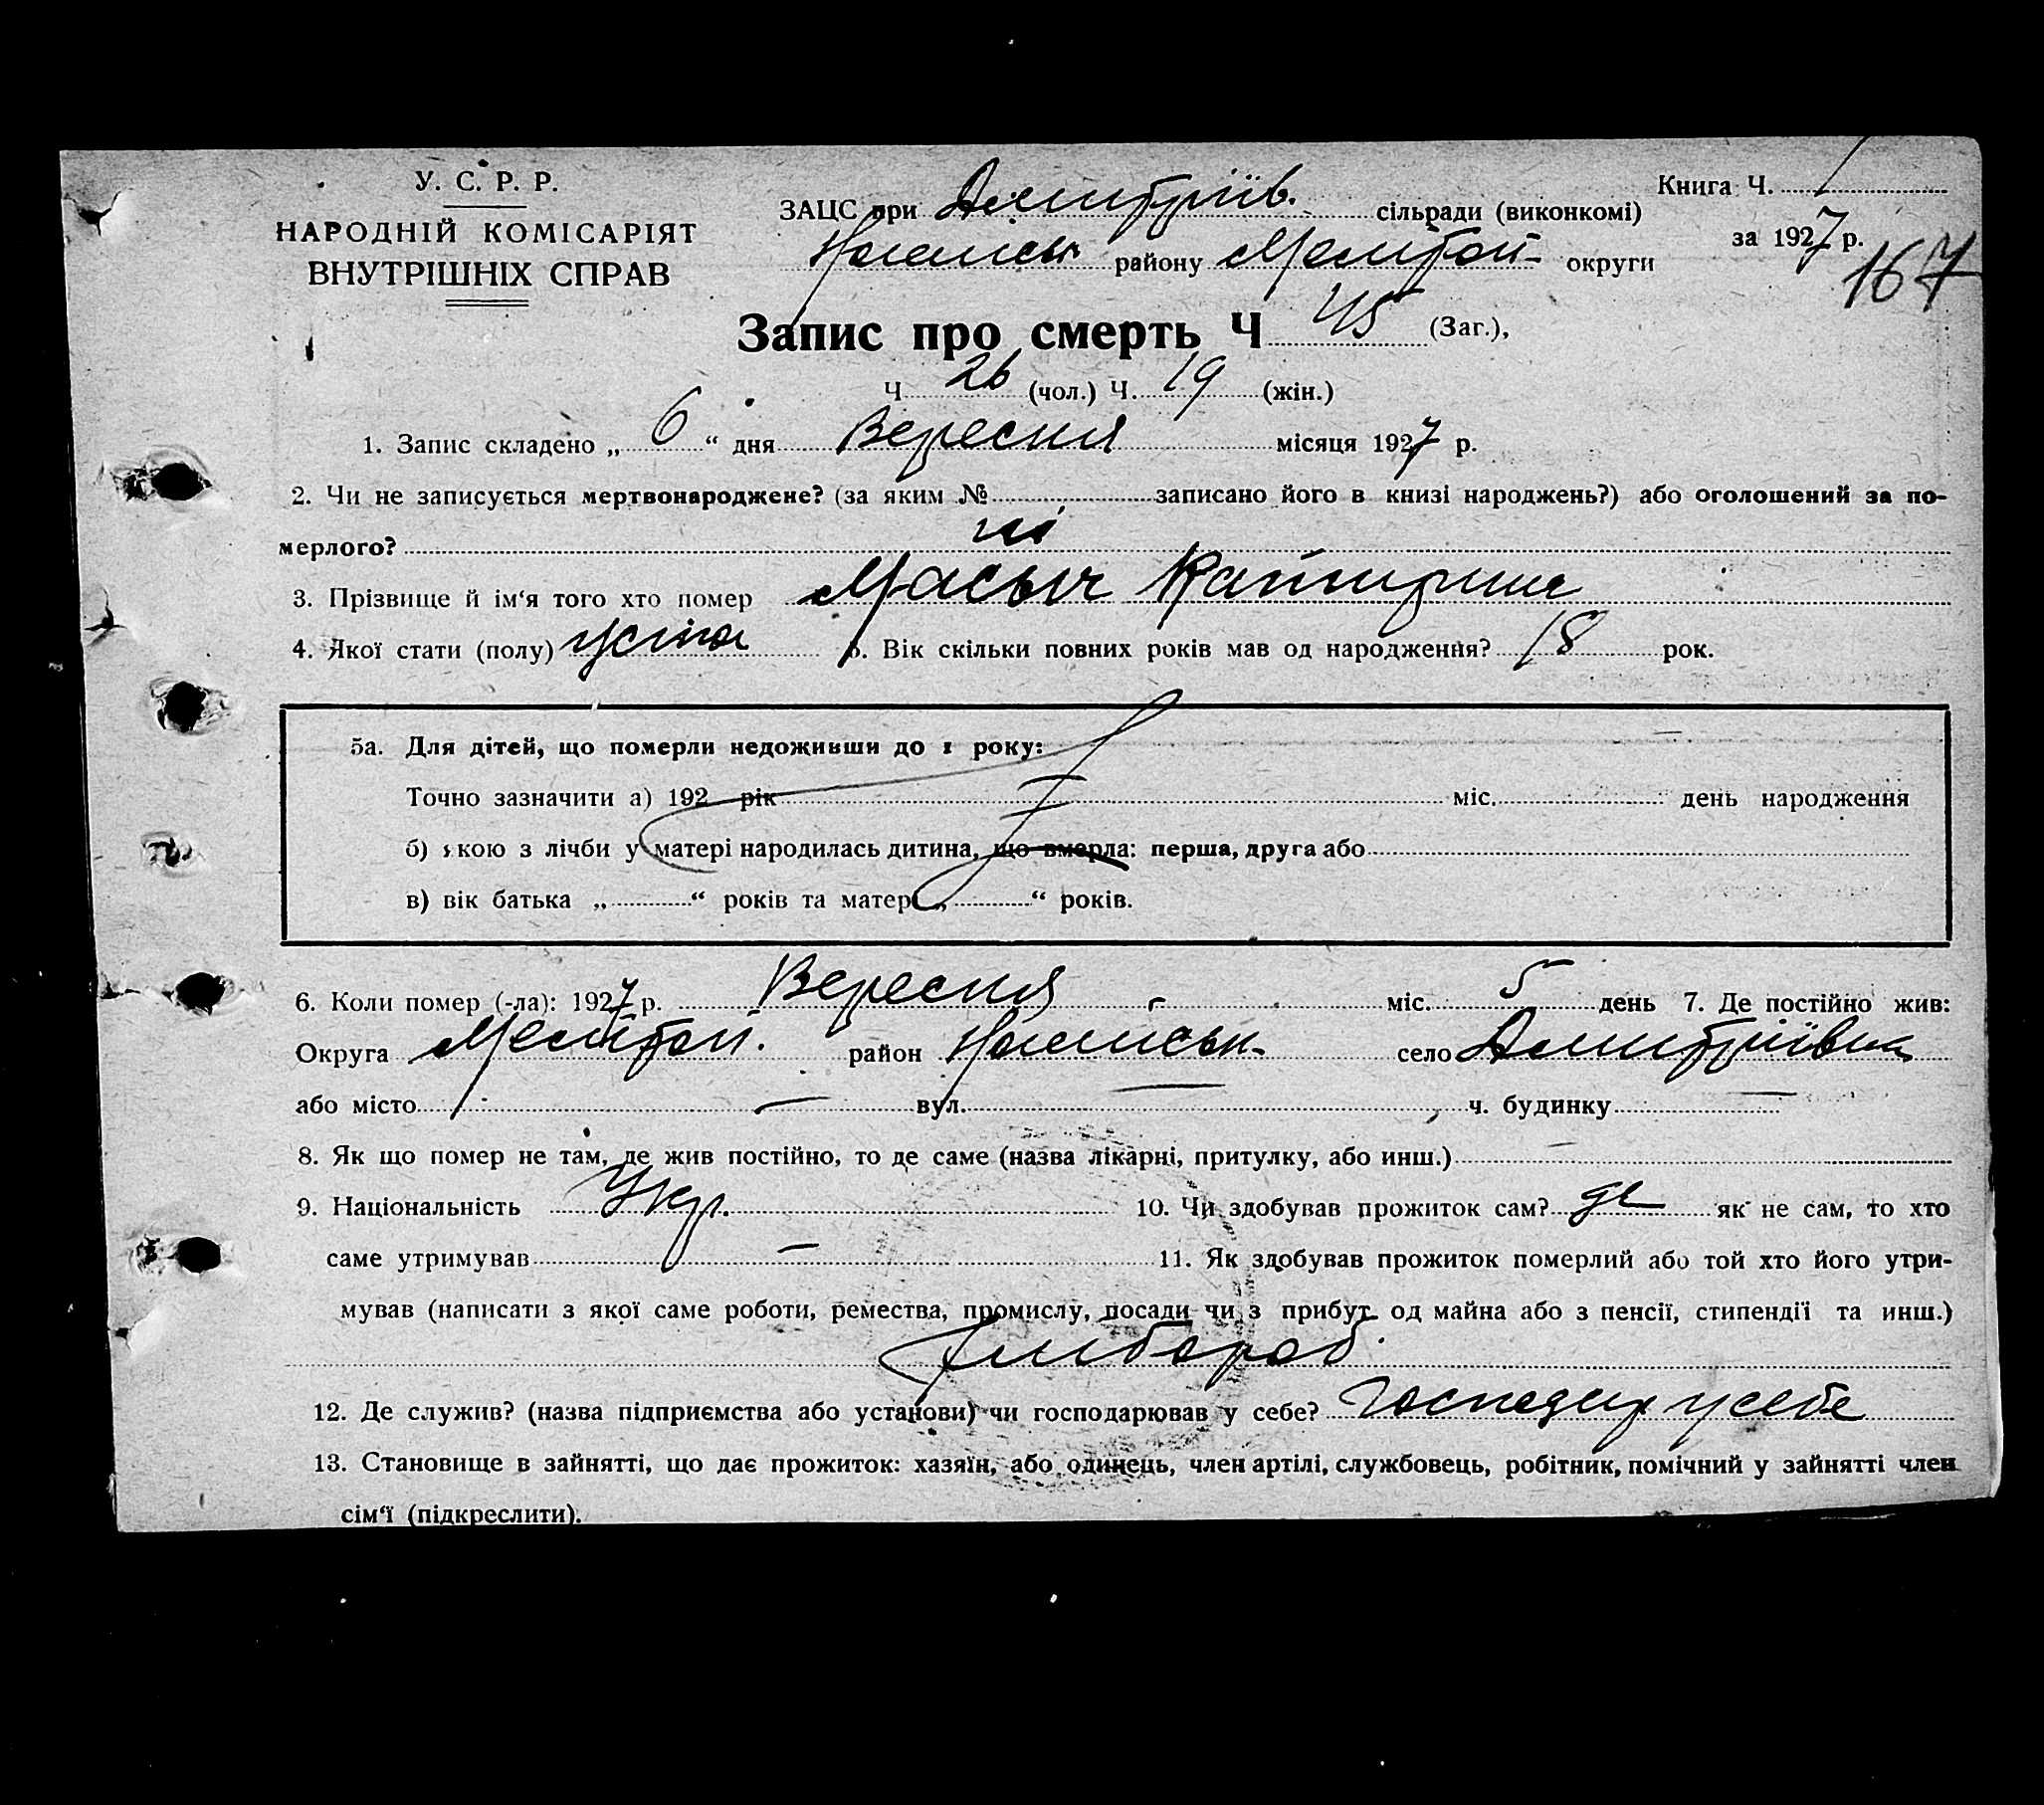 У. С. Р. Р.
НАРОДНІЙ КОМІСАРІЯТ
ВНУТРІШНІХ СПРАВ
Книга Ч. 1
ЗАЦС при Дмитріїв. сільради (виконкомі)
за 1927 р.
району округи
167
Запис про смерть Ч 45 (Заг.),
Ч 26 (чол.) Ч. 19 (жін.)
1. Запис складено „ 6 “ дня Вересня місяця 1927 р.
2. Чи не записується мертвонароджене? (за яким № записано його в книзі народжень?) або оголошений за по-
мерлого? ні
3. Прізвище й ім‘я того хто помер Масыч Катирина
4. Якої стати (полу) 5. Вік скільки повних років мав од народження? 18 рок.
5а. Для дітей, що померли недоживши до 1 року:
Точно зазначити а) 192 рік міс. день народження
б) якою з лічби у матері народилась дитина, що вмерла: перша, друга або
в) вік батька „ “ років та матері „ “ років.
6. Коли помер (-ла): 1927 р. Вересня міс. 5 день 7. Де постійно жив:
Округа район село Дмитріївка
або місто — вул. — ч. будинку —
8. Як що помер не там, де жив постійно, то де саме (назва лікарні, притулку, або инш.) —
9. Національність Укр. 10. Чи здобував прожиток сам? як не сам, то хто
саме утримував — 11. Як здобував прожиток померлий або той хто його утри-
мував (написати з якої саме роботи, ремества, промислу, посади чи з прибут. од майна або з пенсії, стипендії та инш.)
Хлібороб.
12. Де служив? (назва підприємства або установи) чи господарював у себе? у себе
13. Становище в зайнятті, що дає прожиток: хазяїн, або одинець, член артілі, службовець, робітник, помічний у зайнятті член
сім‘ї (підкреслити).